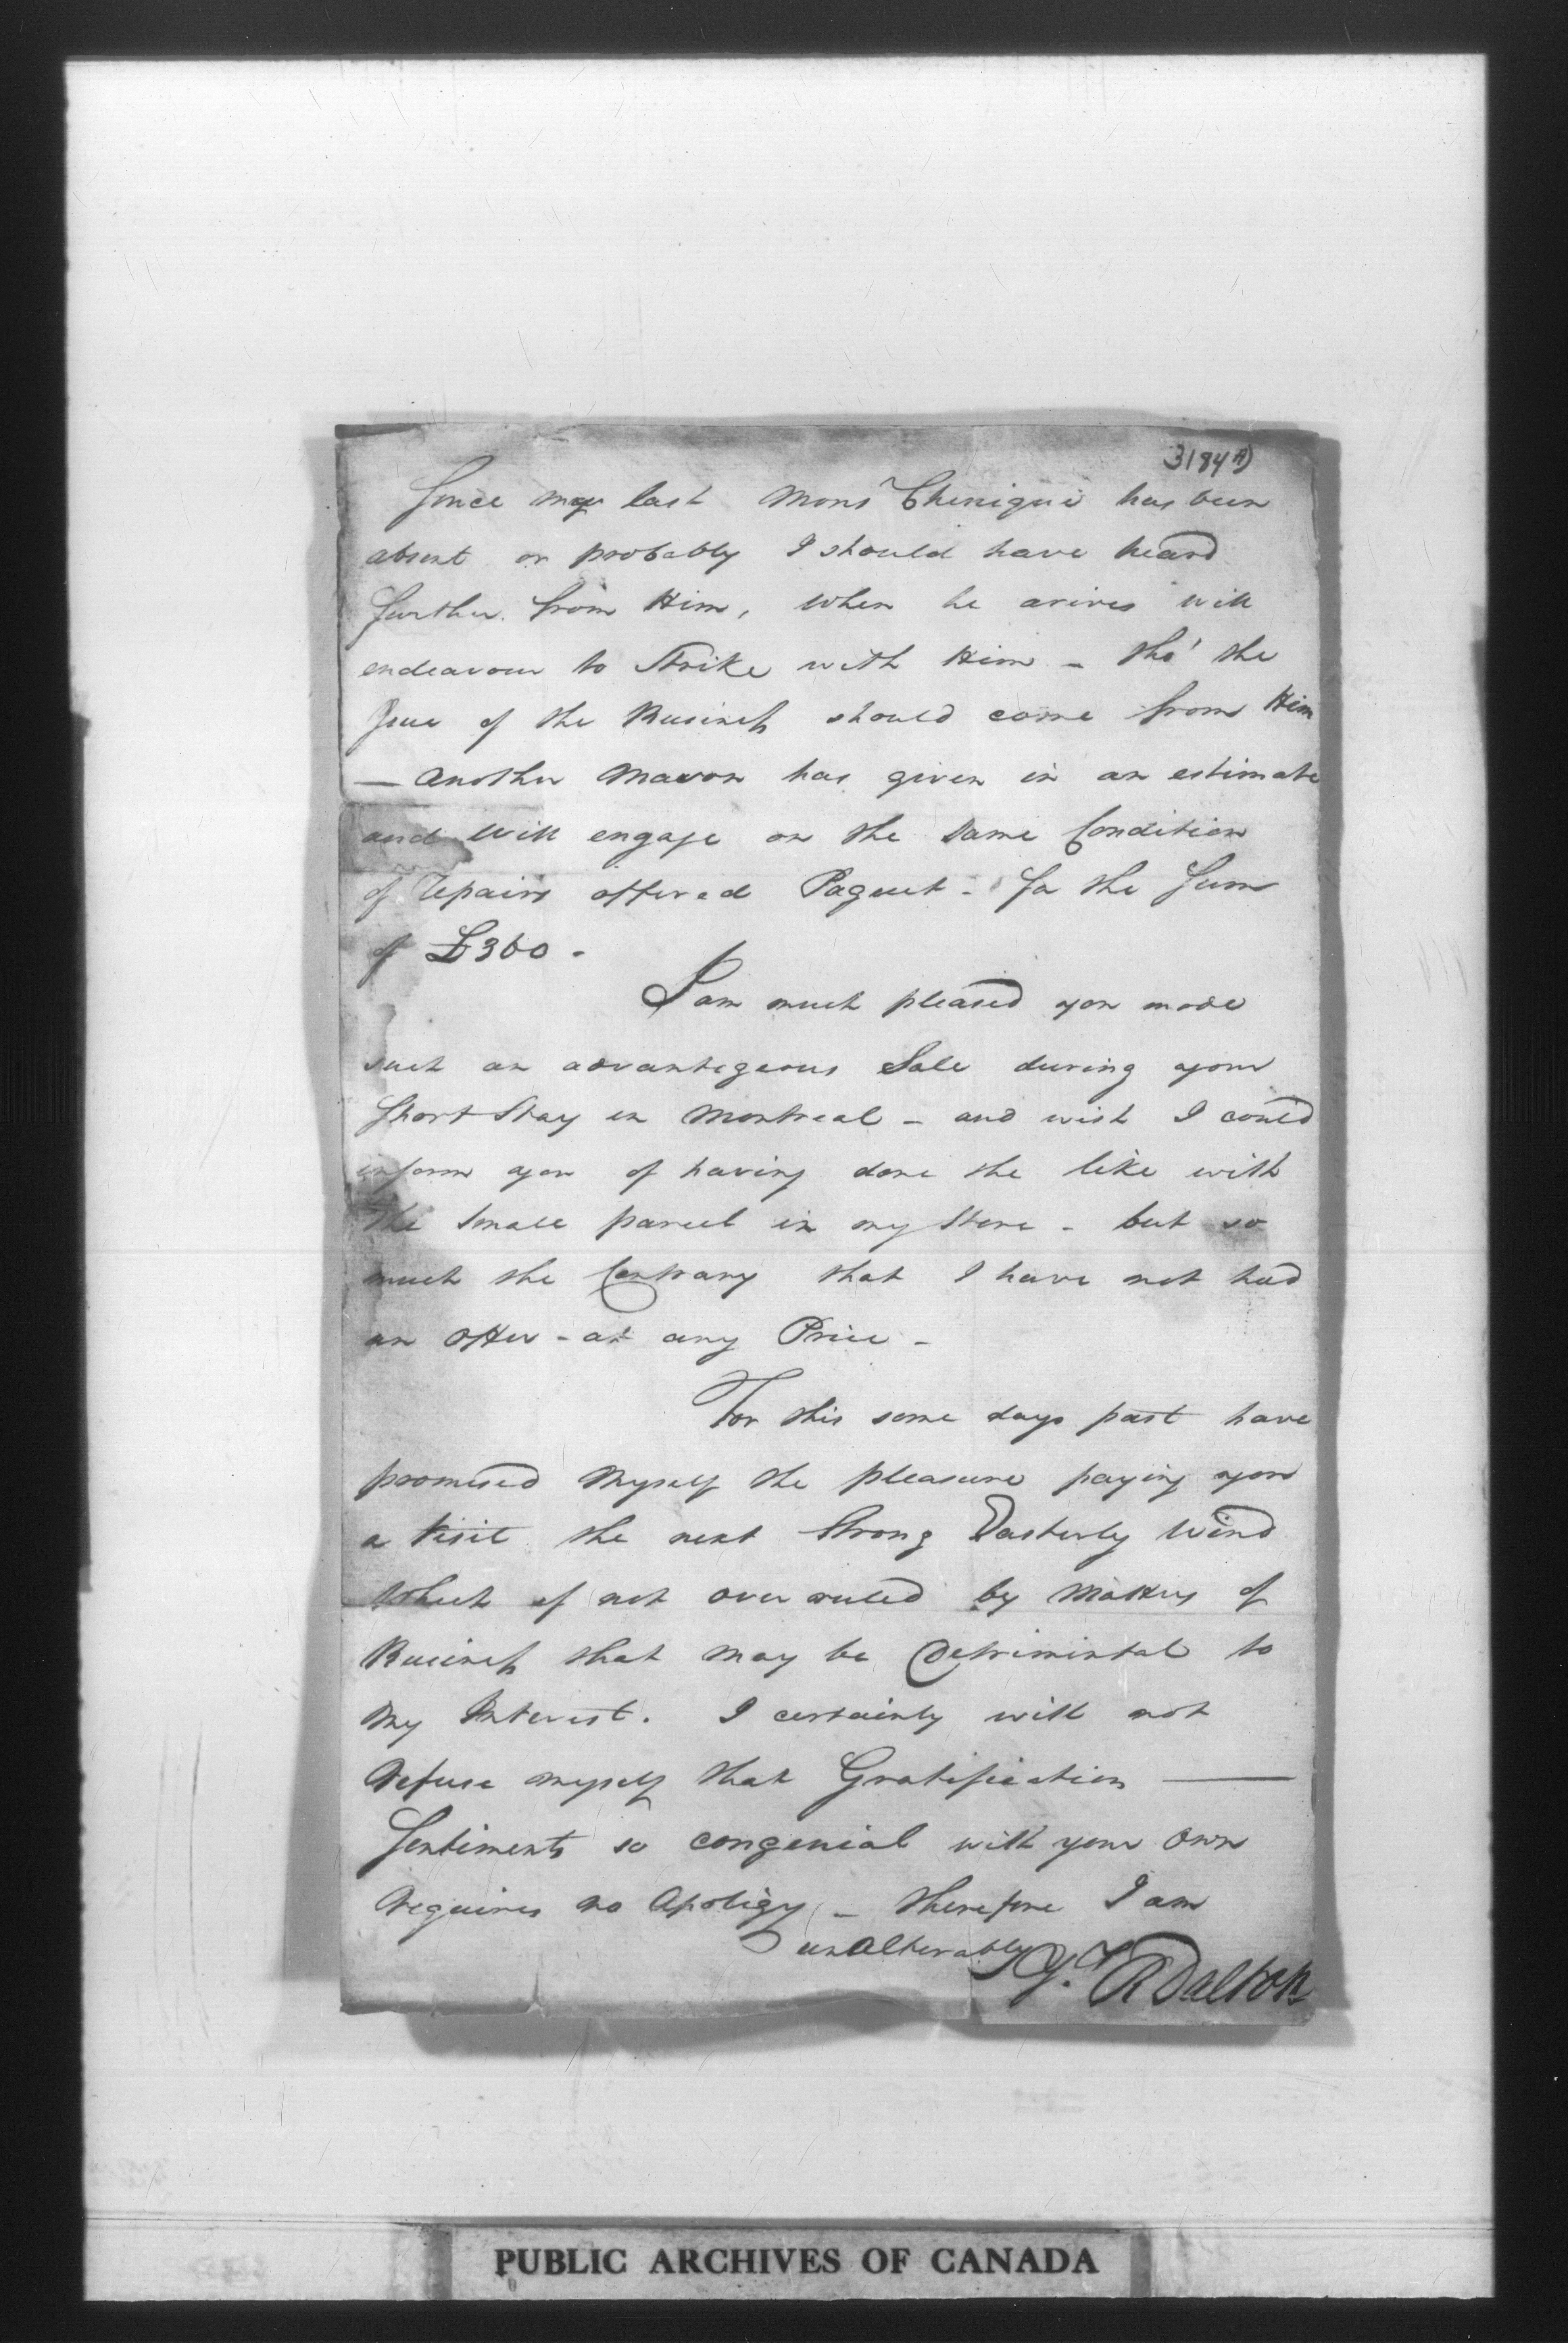 3184 A)
Since my last Monsr Cheniqui has been
absent or probably I should have heard
further from Him, when he arives will
endeavour to Strike with Him - tho' the
Issue of the Business should come from Him
— Another Mason has given in an estimate
and will engage on the same Condition
of repairs offered Paquet - for the Sum
of £360 -
I am much pleased you made
such an advantageous Sale during your
Short Stay in Montreal - and wish I could
inform you of having done the like with
the small parcel in my Store - but so
much the Contrary that I have not had
an offer - at any Price -
For this some days past have
promised Myself the pleasure paying you
a Visit the next Strong Easterly Wind
which if not over ruled by Matters of
Business that may be Detrimintal to
My Interest. I certainly will not
refuse myself that Gratification —
Sentiments so congenial with your own
requires no Apoligy - therefore I am
unalterably Y.
R Dalton
PUBLIC ARCHIVES OF CANADA